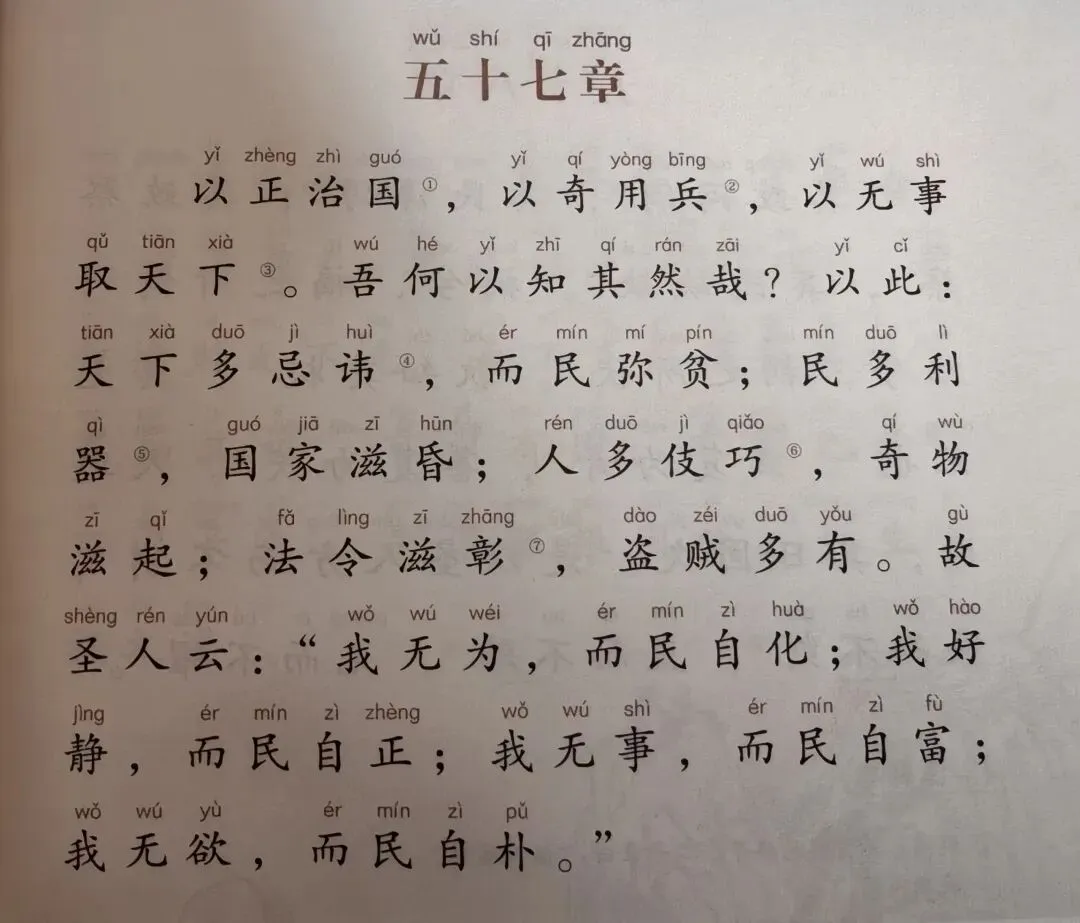 wǔ shí qī zhāng
五十七章
yǐ zhèng zhì guó yǐ qí yòng bīng yǐ wú shì
以正治国①，以奇用兵②，以无事
qǔ tiān xià wú hé yǐ zhī qí rán zāi yǐ cǐ
取天下③。吾何以知其然哉？以此：
tiān xià duō jì huì ér mín mí pín mín duō lì
天下多忌讳④，而民弥贫；民多利
qì guó jiā zī hūn rén duō jì qiǎo qí wù
器⑤，国家滋昏；人多伎巧⑥，奇物
zī qǐ fǎ lìng zī zhāng dào zéi duō yǒu gù
滋起；法令滋彰⑦，盗贼多有。故
shèng rén yún wǒ wú wéi ér mín zì huà wǒ hào
圣人云：“我无为，而民自化；我好
jìng ér mín zì zhèng wǒ wú shì ér mín zì fù
静，而民自正；我无事，而民自富；
wǒ wú yù ér mín zì pǔ
我无欲，而民自朴。”